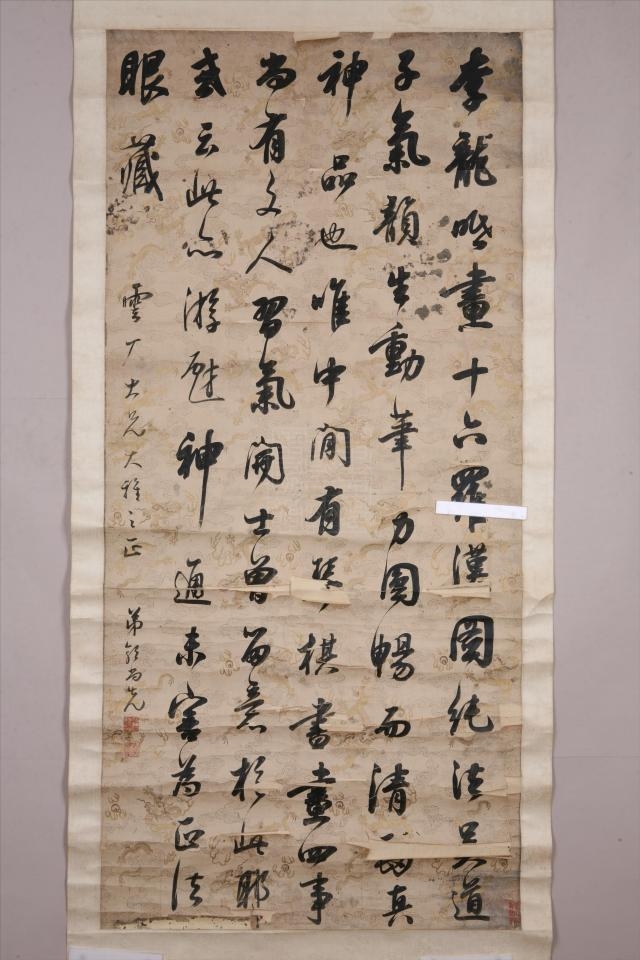 李龍眠畫十六羅漢圖純法吳道
子氣韻生動筆力圓暢而清真
神品也唯中間有琴棋書畫四事
尚有文人習氣開士曾留意於此耶
或云此亦游戲神通未害為正法
眼藏
雲大兄大雅之正
弟郭尚先